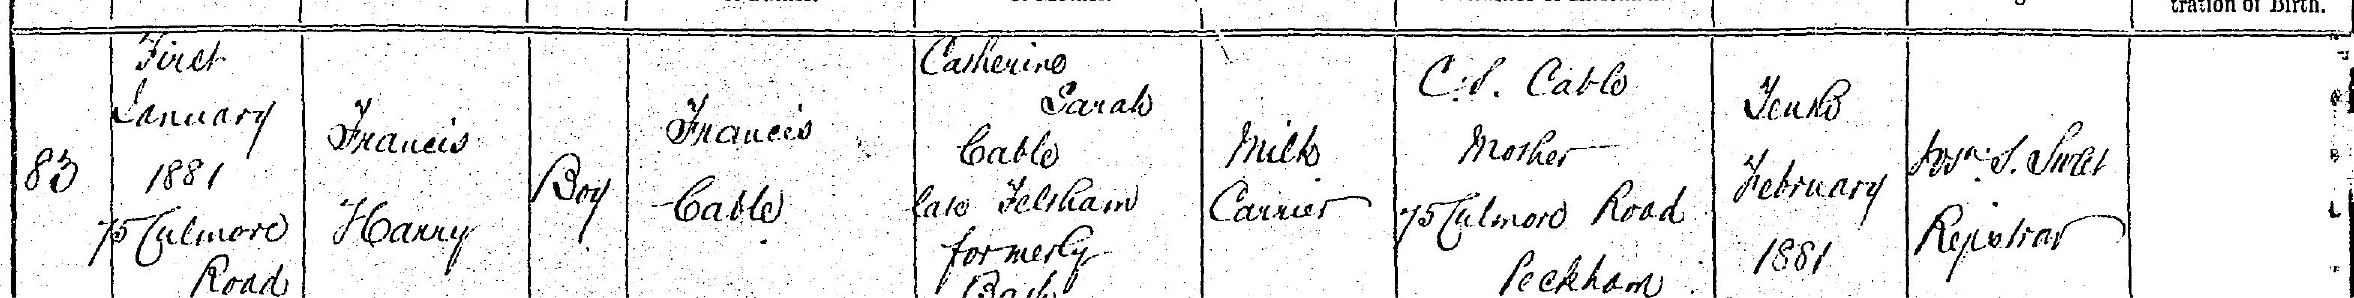 tration of Birth.
83
First
January
1881
75 Culmore
Road
Francis
Harry
Boy
Francis
Cable
Catherine
Sarah
Cable
late Felsham
formerly
Milk
Carrier
C. S. Cable
Mother
75 Culmore Road
Peckham
Tenth
February
1881
S. Sweet
Registrar